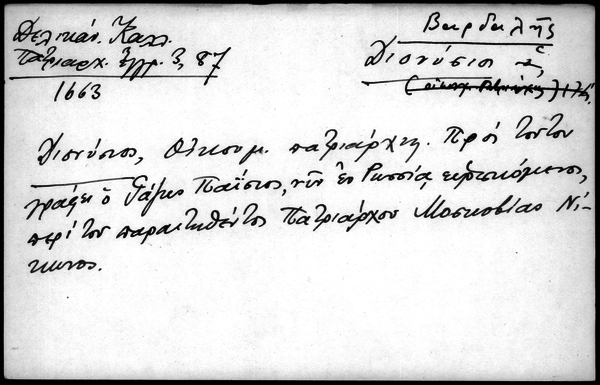 Δελικάν. Καλλ.
Πατριαρχ. ἔγγρ. 3, 87
1663
Βαρδαλῆς
Διονύσιος
Διονύσιος, Οἰκουμ. πατριάρχης. Πρὸς τοῦτον
γράφει ὁ Γάζης Παΐσιος, νῦν ἐν Ρωσσίᾳ εὑρισκόμενος,
περὶ τοῦ παραιτηθέντος Πατριάρχου Μοσκοβίας Νί-
κωνος.